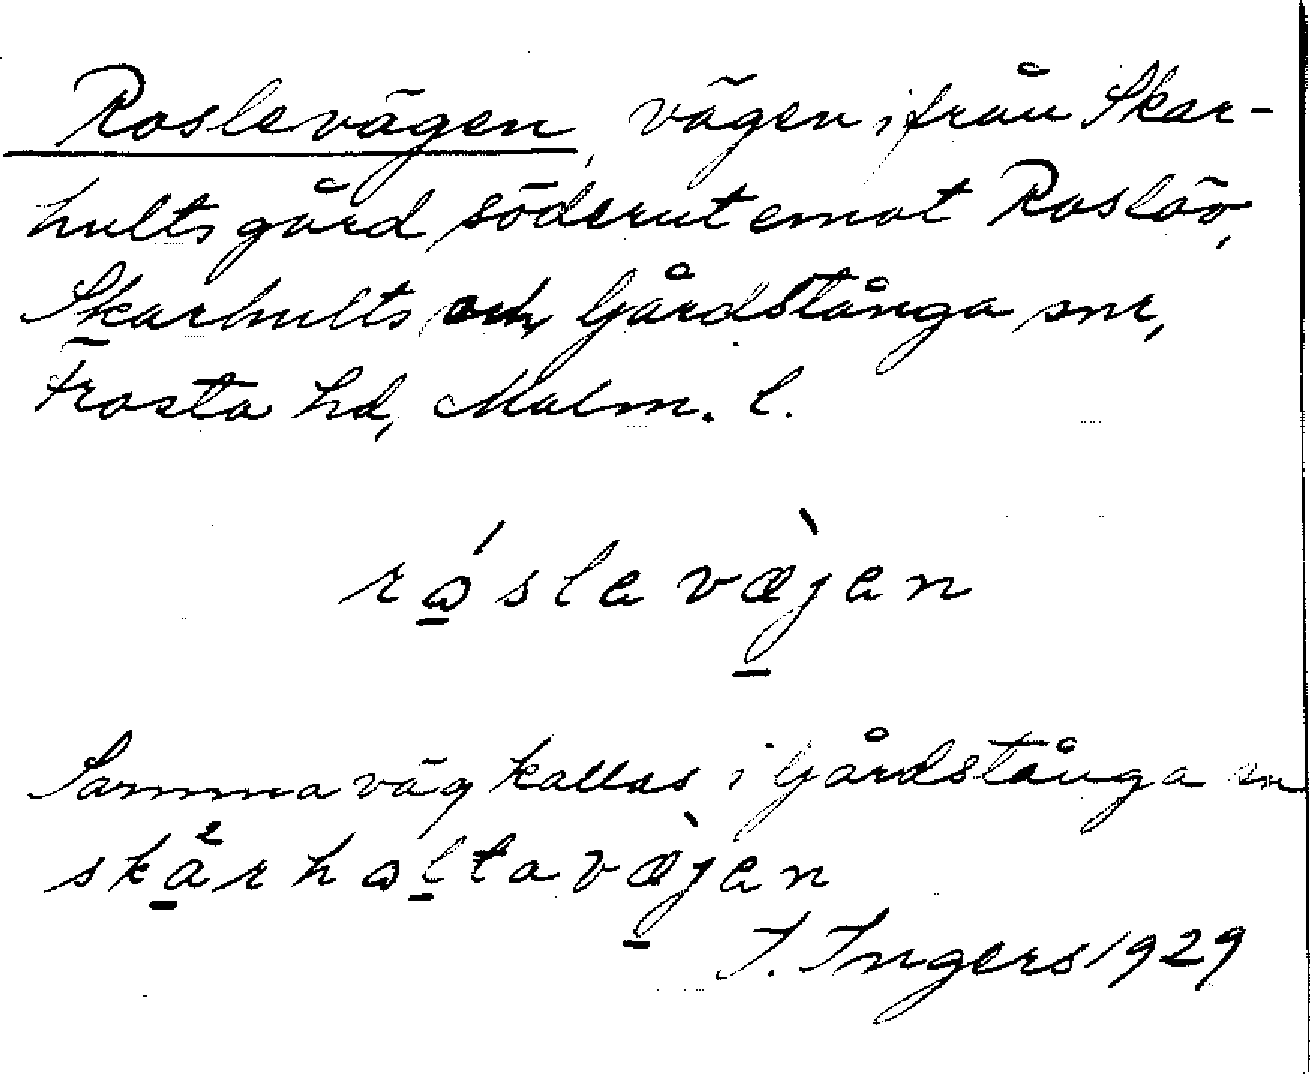 Roslevägen, vägen ifrån Skar-
hults gård söderut emot Roslöv,
Skarhults och Gårdstånga snr,
Frosta hd, Malm. l.
rǫ́slevæ̀jen
Samma väg kallas i Gårdstånga sn
skårhǫltavæ̀jen
I. Ingers 1929